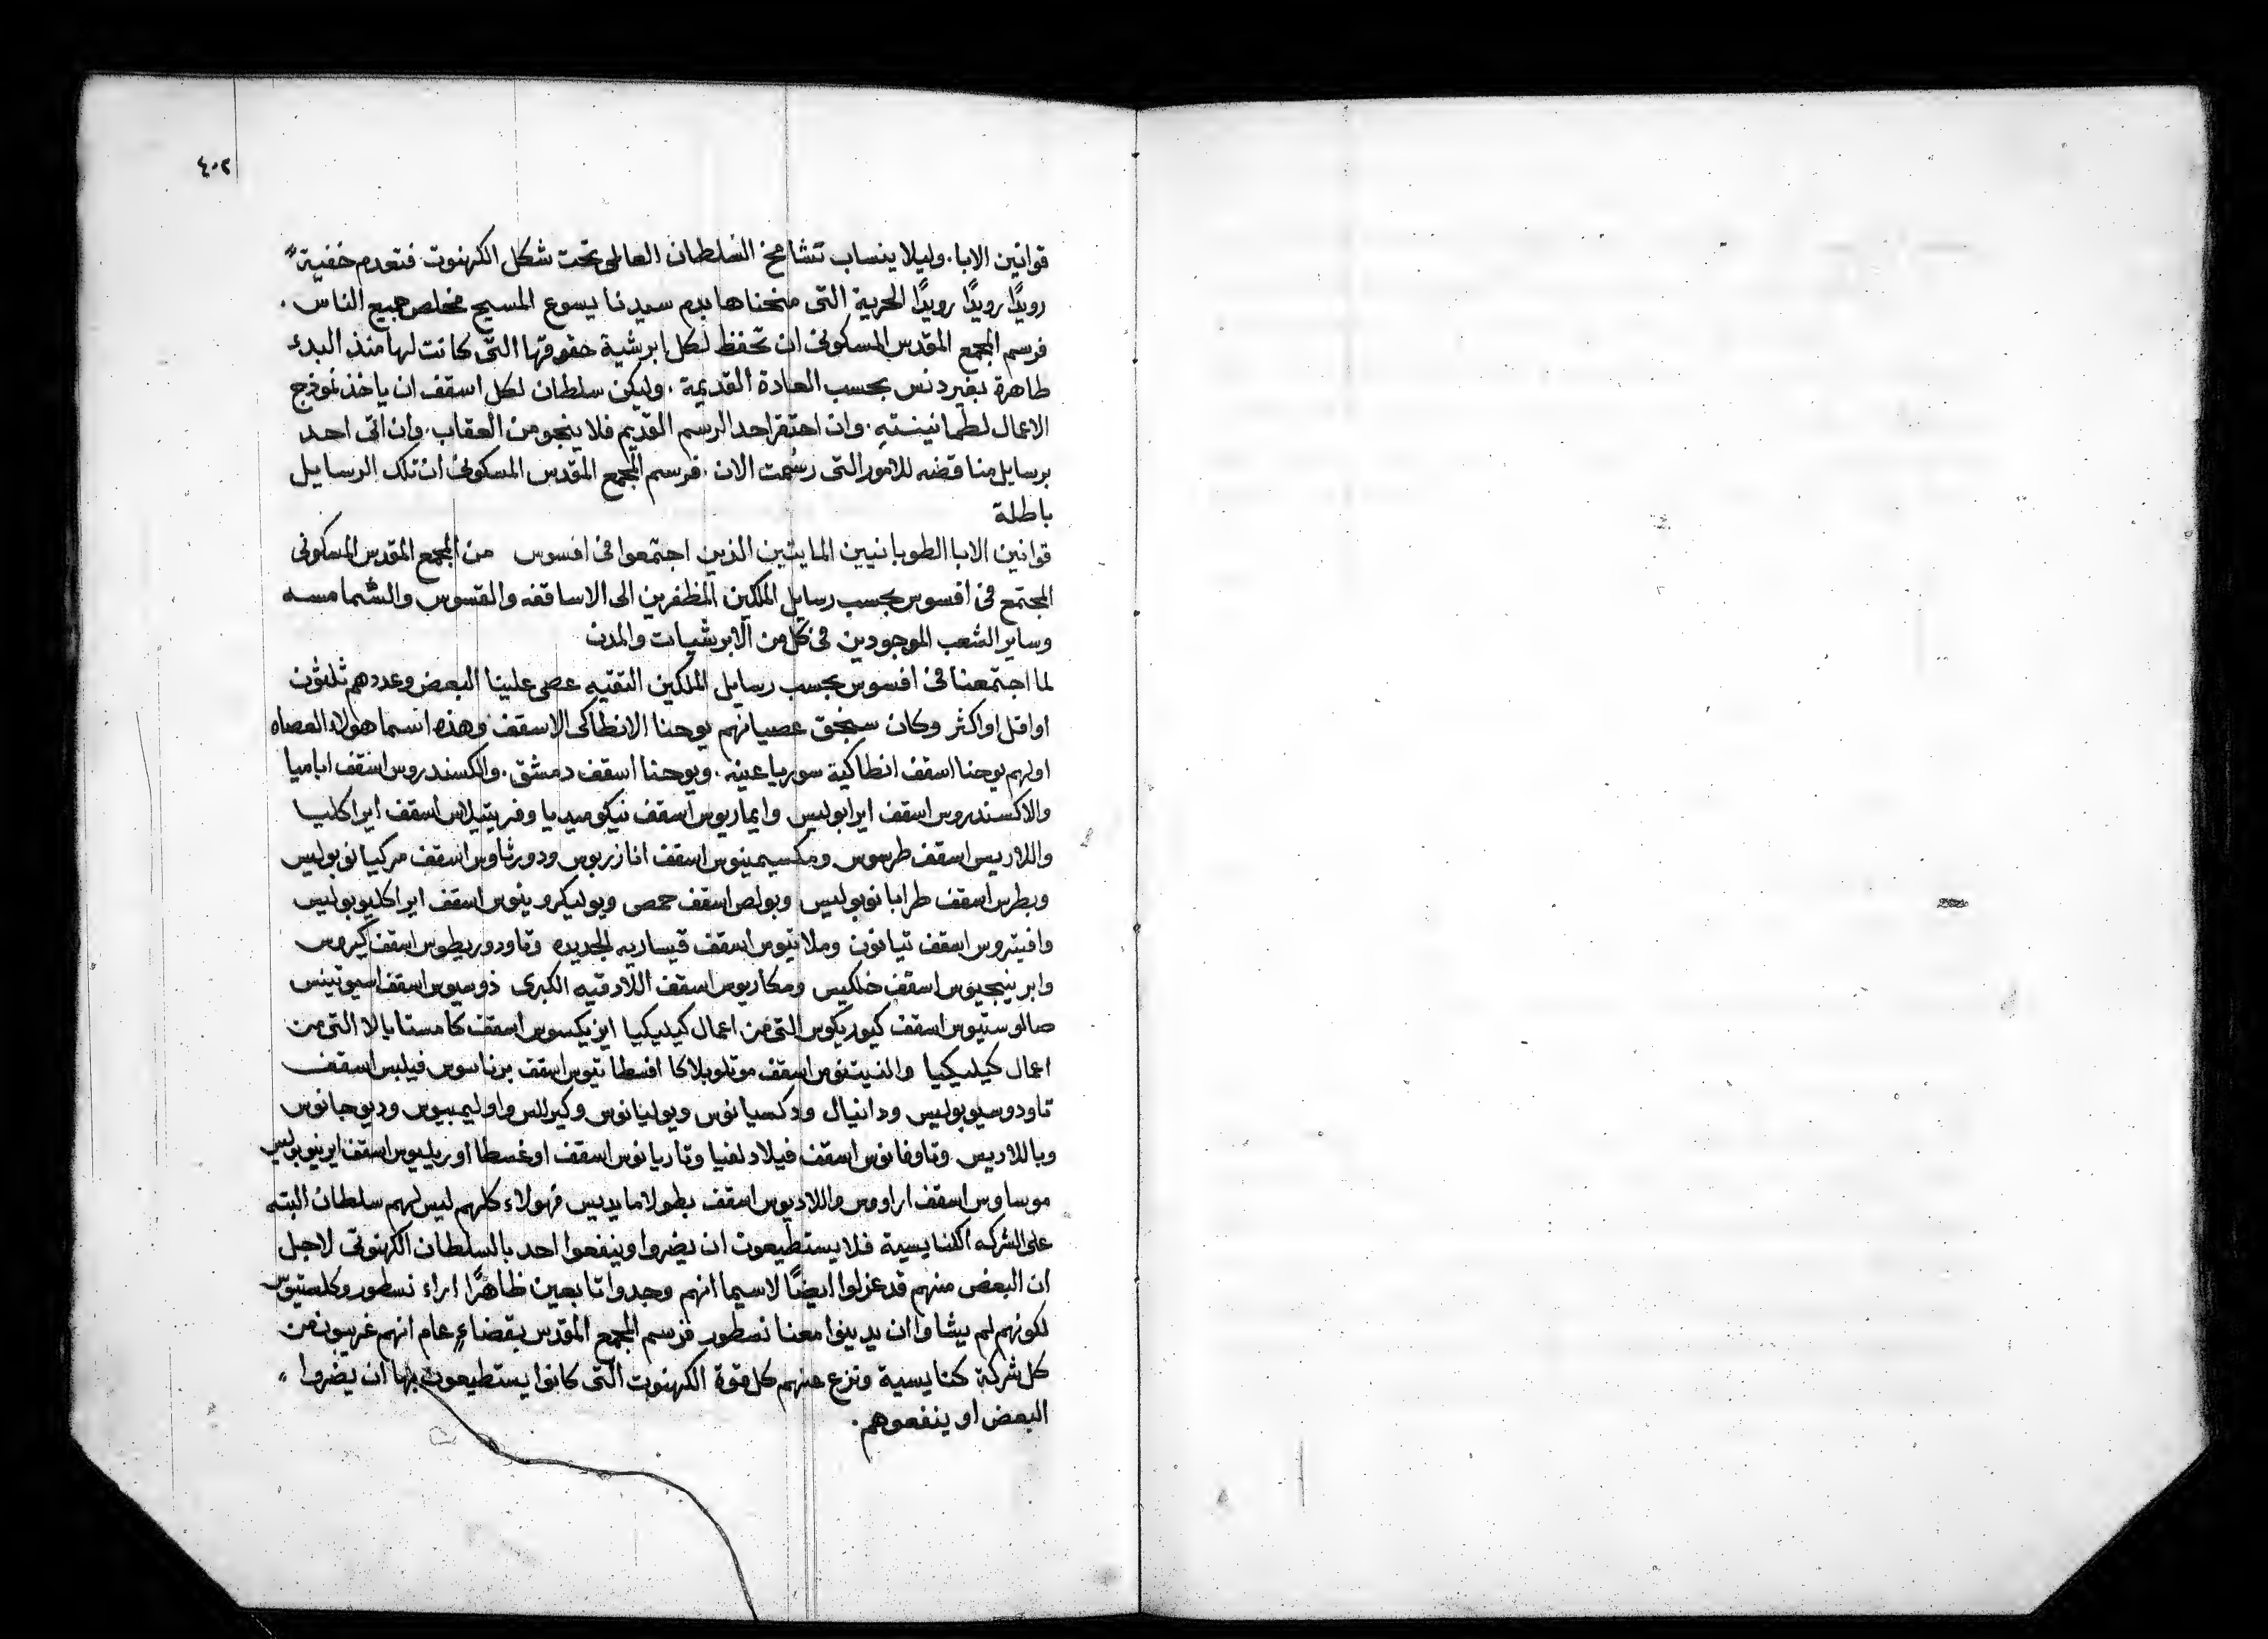 ٤٠٢
قوانين الابا. وليلا ينساب تشامخ السلطان العالمى تحت شكل الكهنوت فتعدم خفيةً
رويدًا رويدًا رويدًا الحرية التى منحناها بدم سيدنا يسوع المسيح مخلص جميع الناس.
فرسم المجمع المقدس المسكونى ان تحفظ لكل ابرشية حقوقها التى كانت لها منذ البدء
طاهرة بغير دنس بحسب العادة القديمة. وليكن سلطان لكل اسقف ان ياخذ نموذج
الاعمال لطمانينته. وان احتقر احد الرسم القديم فلا ينجو من العقاب. وان اتى احد
برسايل مناقضه للامور التى رسمت الان. فرسم المجمع المقدس المسكونى ان تلك الرسايل
باطلة
قوانين الابا الطوبانيين المايتين الذين اجتمعوا فى افسوس من المجمع المقدس المسكونى
المجتمع فى افسوس بحسب رسايل الملكين المظفرين الى الاساقفه والقسوس والشمامسه
وساير الشعب الموجودين فى كل من الابرشيات والمدن
لما اجتمعنا فى افسوس بحسب رسايل الملكين التقيه عصى علينا البعض وعددهم ثلثون
او اقل او اكثر وكان سنجق عصيانهم يوحنا الانطاكى الاسقف وهذه اسما هولاء العصاه
اولهم يوحنا اسقف انطاكية سوريا عينه. ويوحنا اسقف دمشق. والكسندروس اسقف اباميا
والاكسندروس اسقف ايرابوليس وايماريوس اسقف نيكوميديا وفريتيلاس اسقف ايراكليا
واللاديس اسقف طرسوس ومكسيمينوس اسقف انازربوس ودورثاوس اسقف مركيانوبوليس
وبطرس اسقف طرابانوبوليس وبولص اسقف حمص وبوليكرونيوس اسقف ايراكليوبوليس
وافيتروس اسقف تيانون وملاتيوس اسقف قيساريه الجديده وتاودوريطوس اسقف كيروس
وابرينجيوس اسقف خلكيس ومكاريوس اسقف اللادقيه الكبرى ذوسيوس اسقف اسيوتينس
صالوستيوس اسقف كيوريكوس التى من اعمال كيليكيا ايزيكسوس اسقف كامستابالا التى من
اعمال كيليكيا والنيتنوس اسقف موتلوبلاكا افسطاتيوس اسقف برناسوس فيلبس اسقف
تاودوسيوبوليس ودانيال ودكسيانوس ويوليانوس وكيرللس واوليمبيوس وديوجانوس
وباللاديس وتاوفانوس اسقف فيلادلفيا وتاريانوس اسقف اوغسطا اوريليوس اسقف ايرينوبوليس
موساوس اسقف اراووس واللاديوس اسقف بطولامايديس فهولاء كلهم ليس لهم سلطان البته
على الشركه الكنايسية فلا يستطيعون ان يضروا وينفعوا احد بالسلطان الكهنوتى لاجل
ان البعض منهم قد عزلوا ايضًا لاسيما انهم وجدوا تابعين ظاهرًا اراء نسطور وكلستيوس
لكونهم لم يشاوا ان يدينوا معنا نسطور فرسم المجمع المقدس بقضاءٍ عام انهم غريبون من
كل شركة كنايسية ونزع عنهم كل قوة الكهنوت التى كانوا يستطيعون بها ان يضروا
البعض او ينفعوهم.